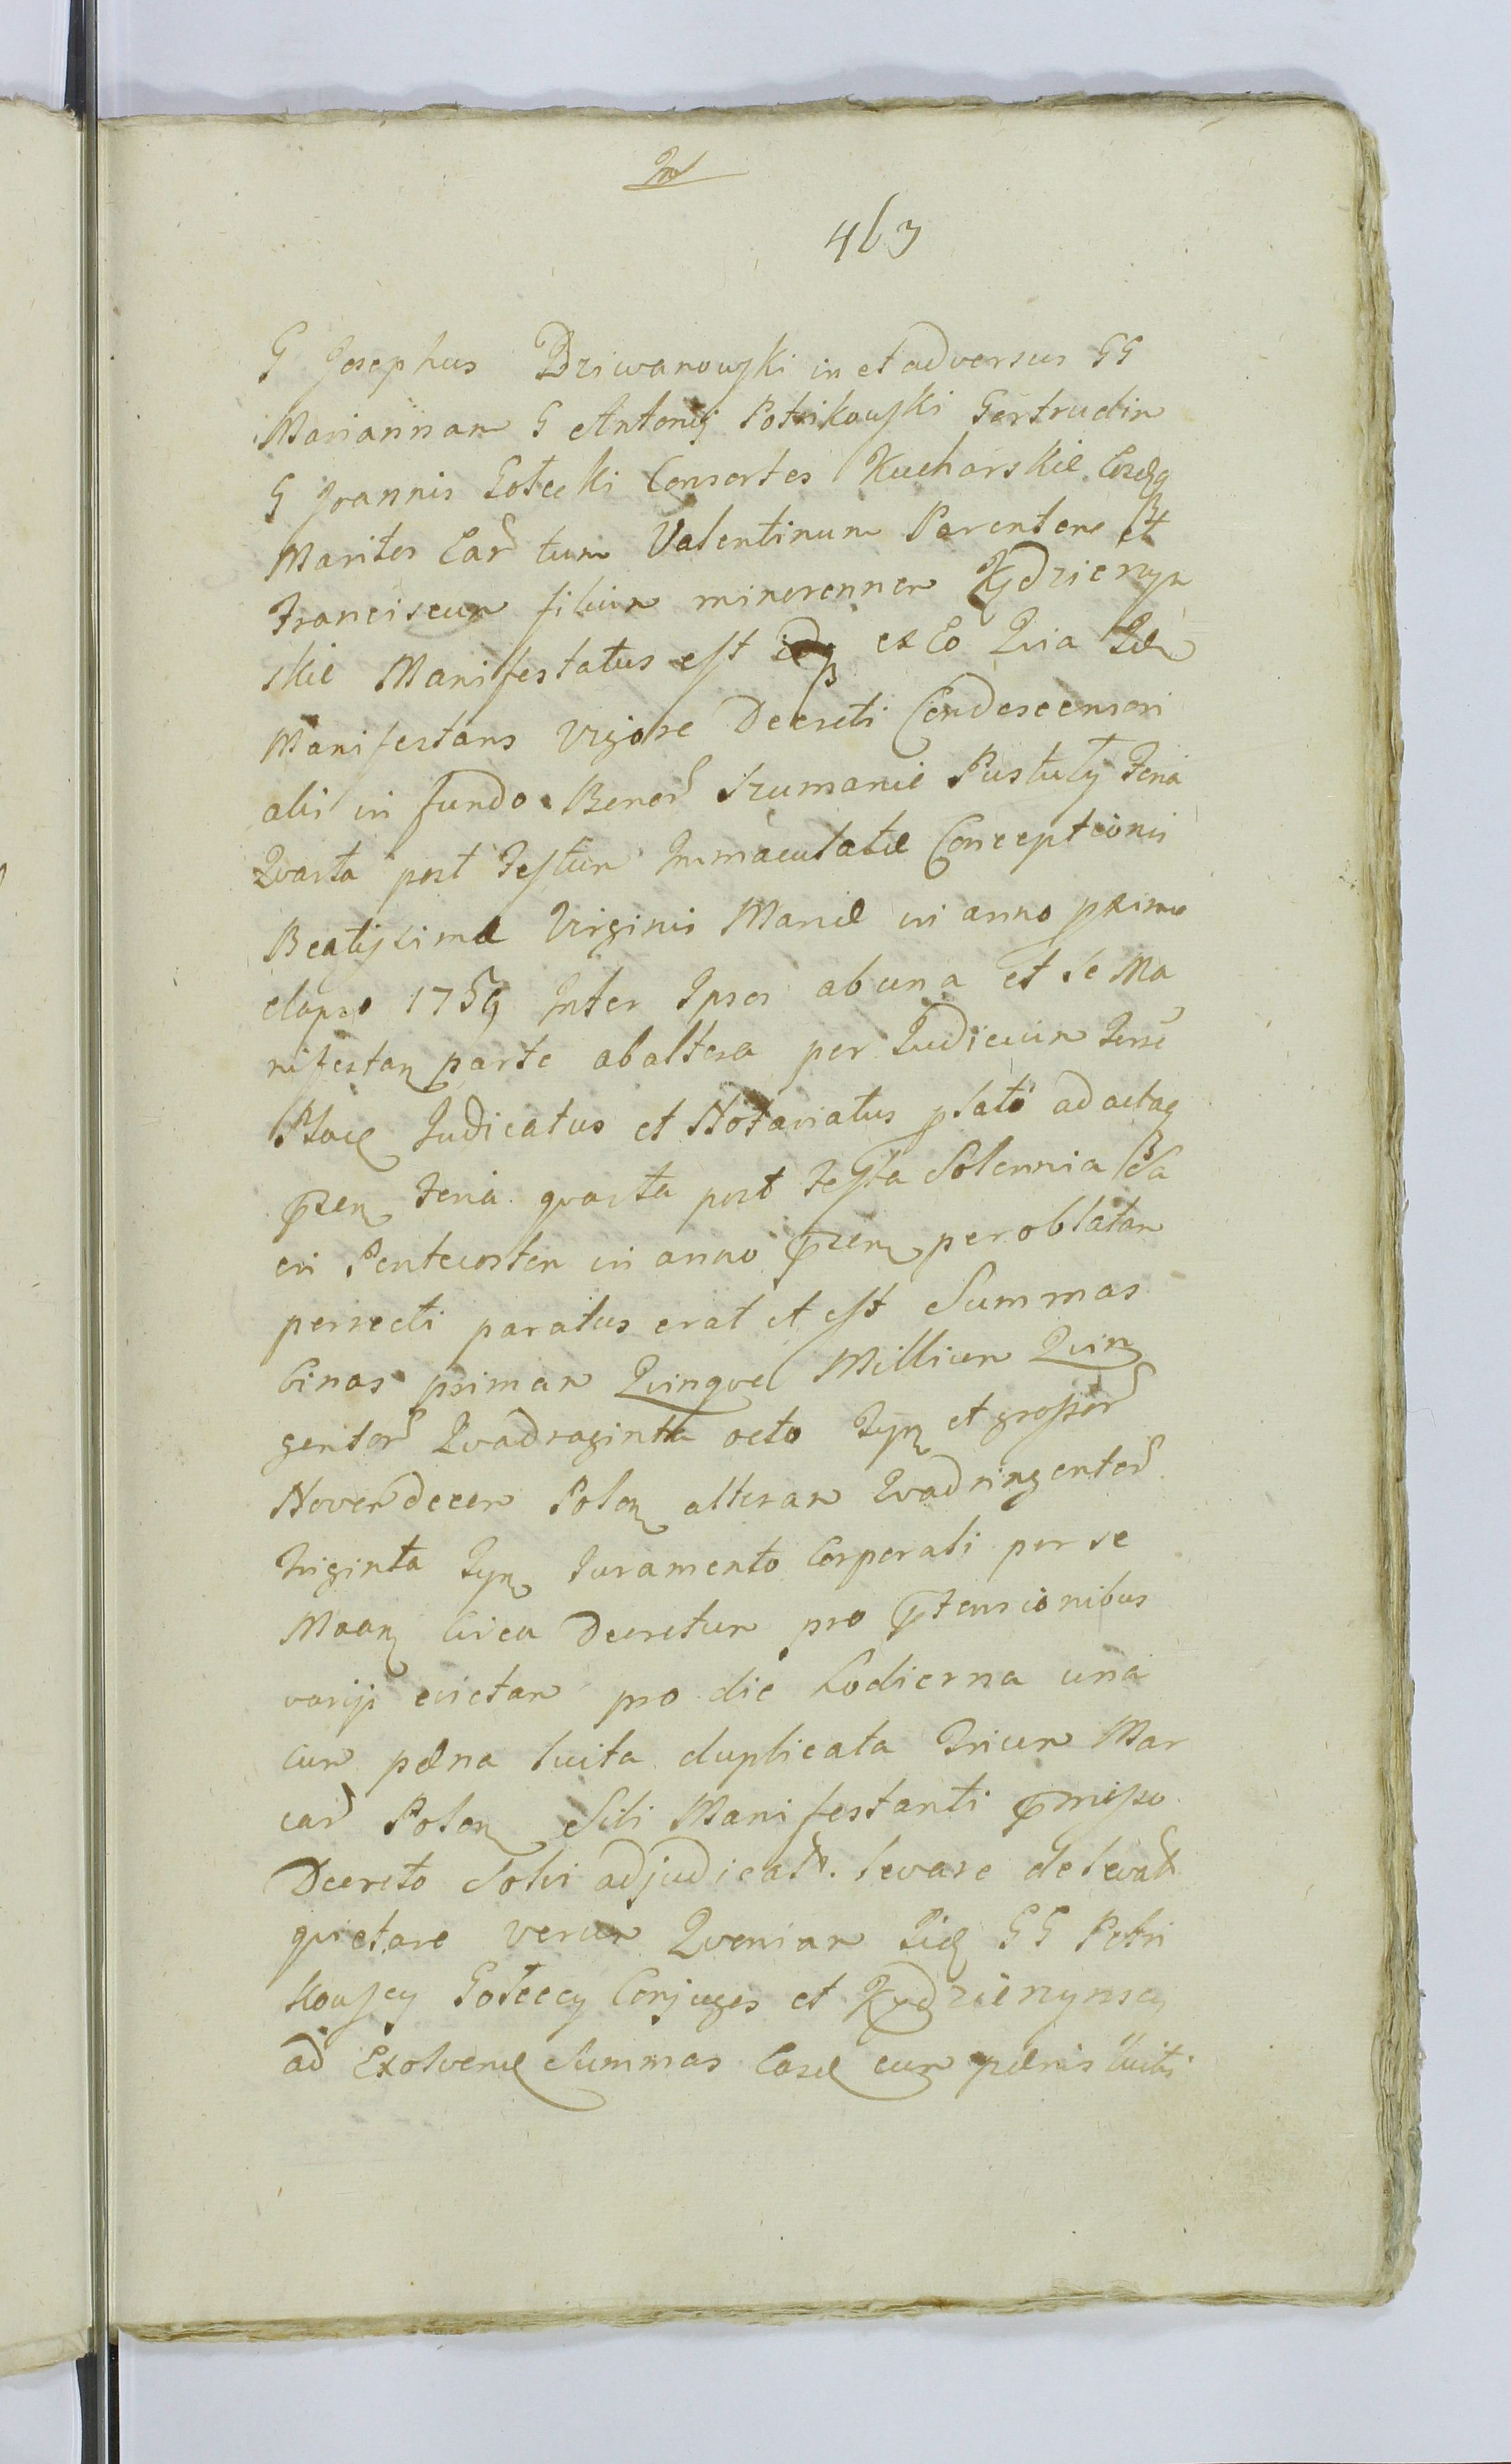 463
G Josephus Dziwanowski in et adversus GG
Mariannam G Antonij Potrikowski Gertrudim
G Joannis Gołecki Consortes Kucharskie Eosdq
Maritos Ear tum Valentinum Parentem et
Franciscum filium minorennem Kędzierzyn
skie Manifestatus est ex Eo Quia Idem
Manifestans vigore Decreti Condescensori
alis in fundo Bonor Szumanie Pustuły Feria
Quarta post Festum Immaculatae Conceptionis
Beatissimae Virginis Mariae in anno prime
elapso 1759 Inter Ipsos ab una et se Ma
nifestan parte ab altera per Judicium Terre
Ploce Judicatus et Notariatus plato ad actaq
pzen Feria quarta post Festa Solennia Sa
cri Pentecosten in anno pzen per oblatam
perrecti paratus erat et est Summas
binas primam Quinque Millium Quin
gentor Quadraginta octo Flyn et grossor
Novendecem Polon alteram Quadringentor
Triginta Flyn Juramento Corporali per se
Maan circa Decretum pro ptensionibus
varijs evictam pro die hodierna una
cum paena luita duplicata Trium Mar
car Polon Sibi Manifestanti pmisso
Decreto Solvi adjudicat. levare delevat
quietare verum Quoniam Iidē GG Potri
kowscy Gołeccy Conjuges et Kędzierzynscy
ad Exolvend Summas Easd cum paenis luitis